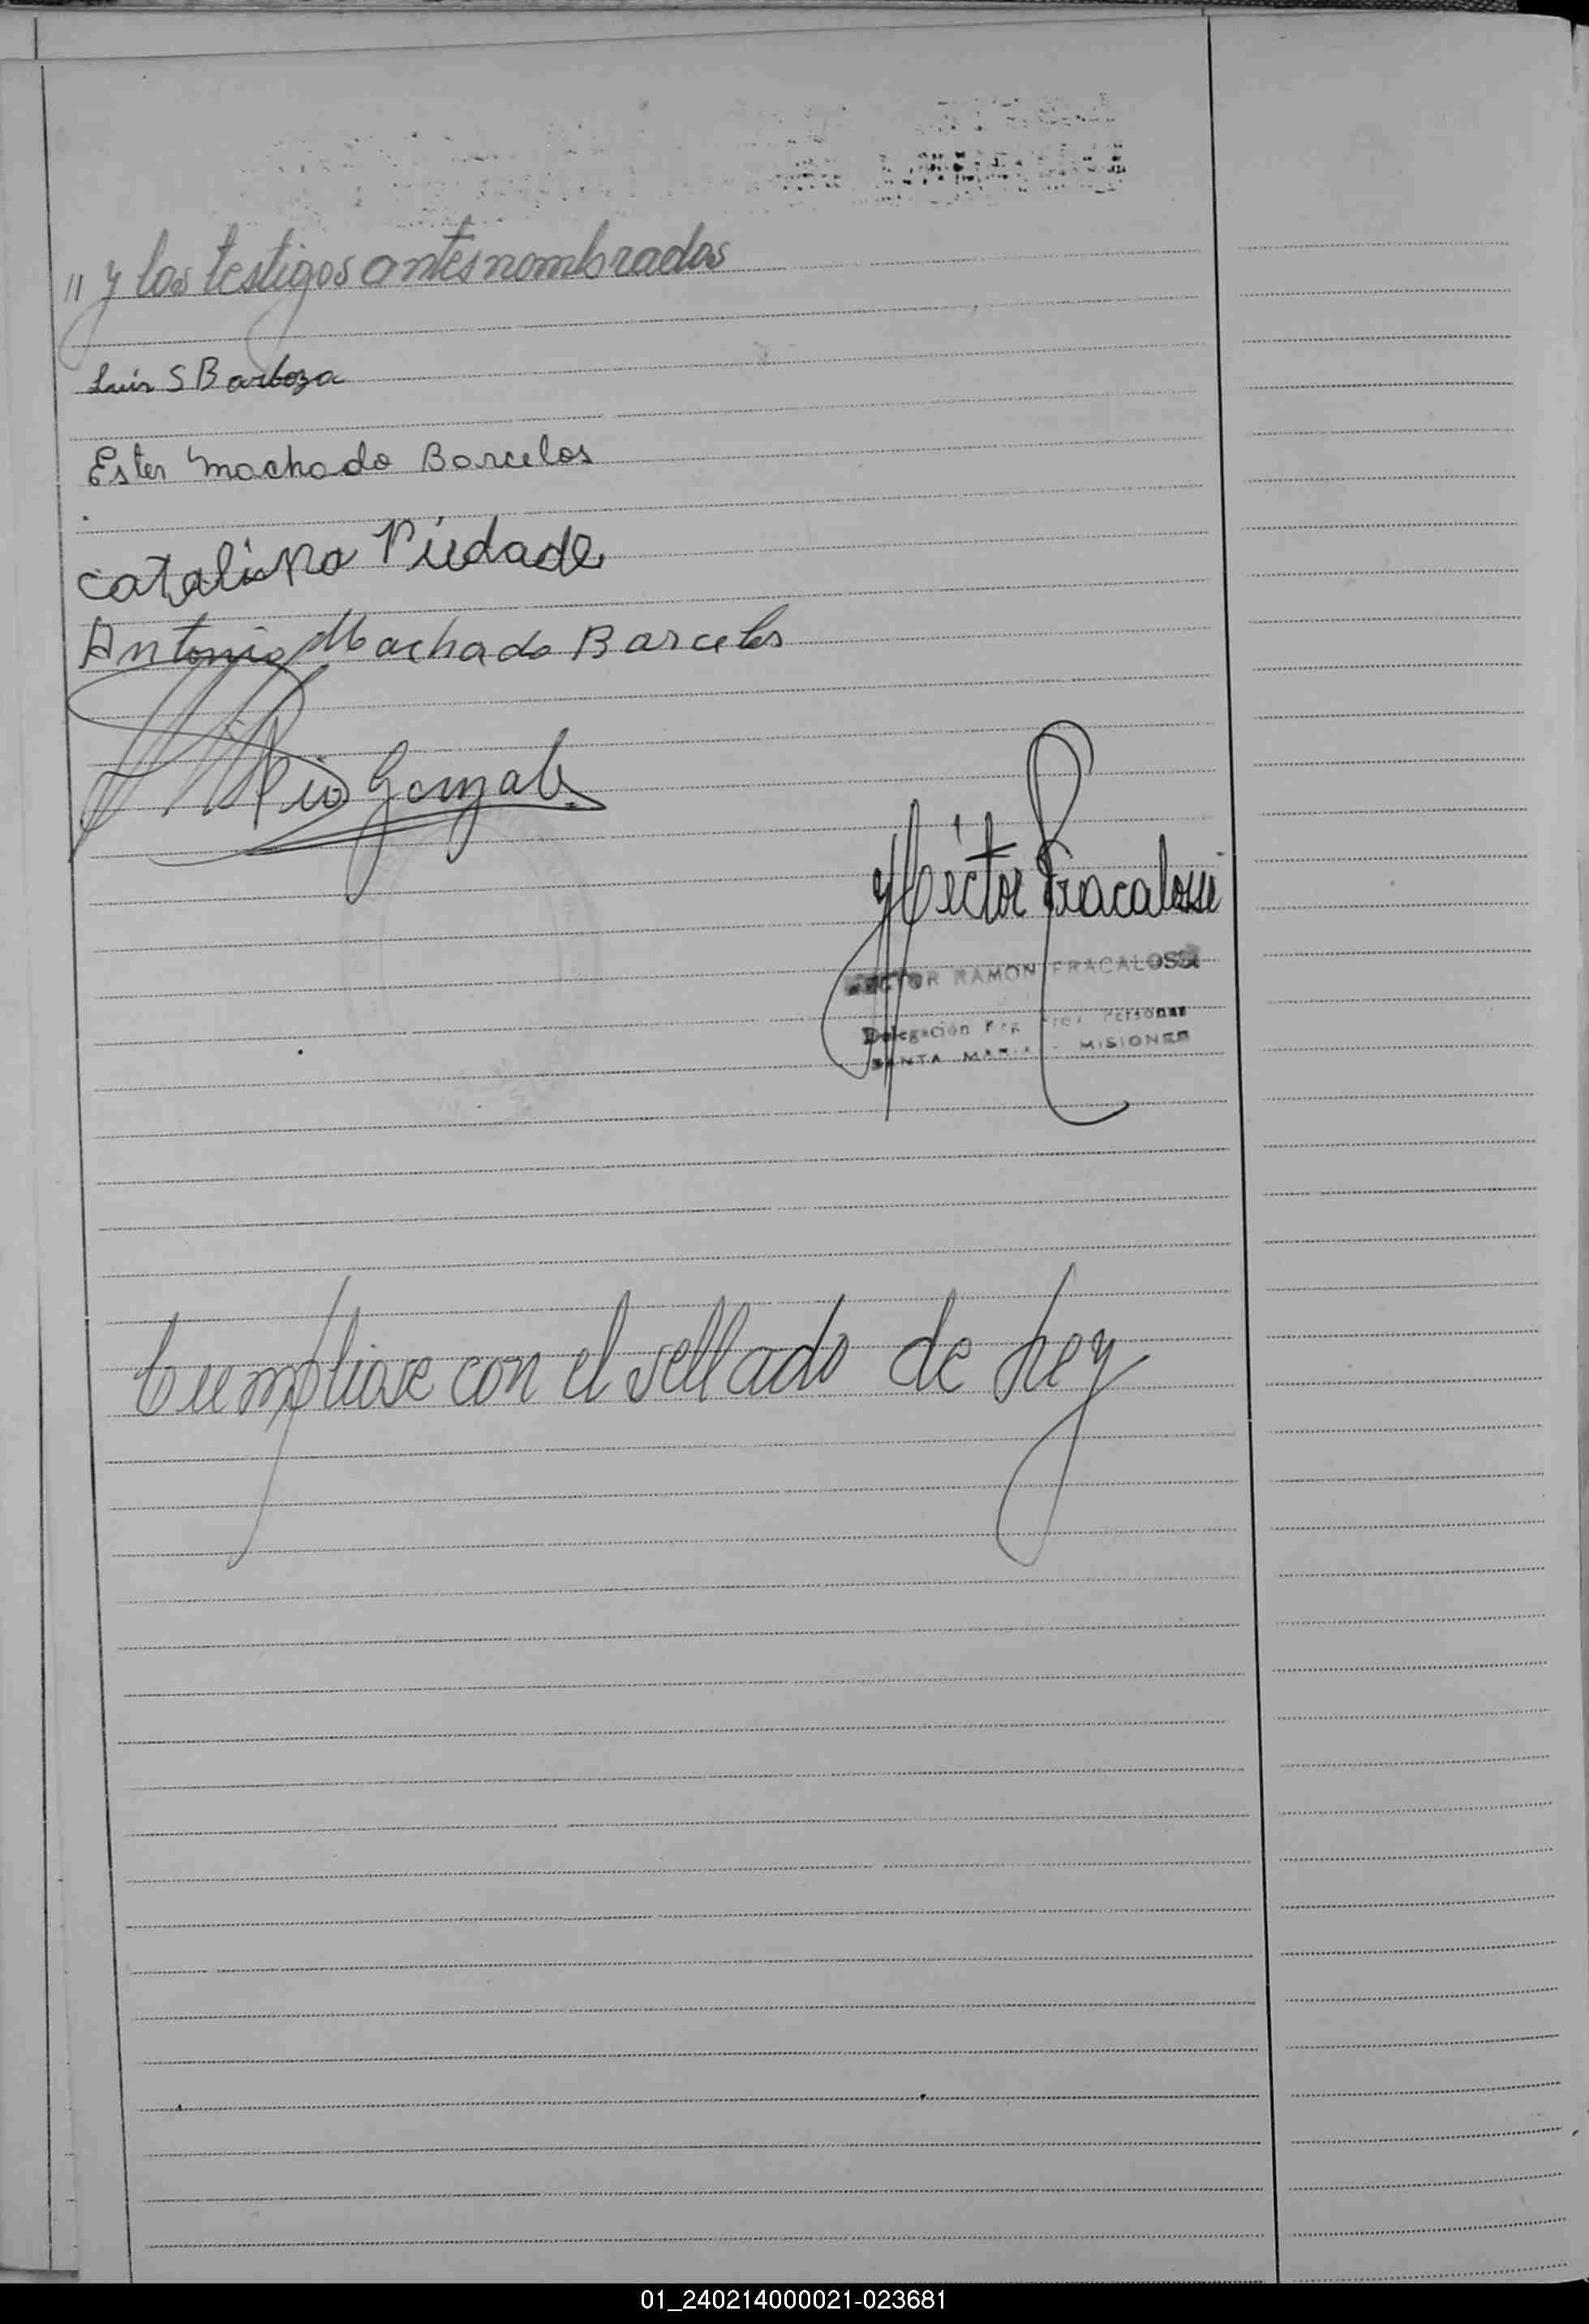 " y los testigos antes nombrados
Luis S Barboza
Ester Machado Barcelos
Catalina Piedade
Antonio Machado Barcelos
Pio Gonzale
Héctor Fracalossi
HECTOR RAMON FRACALOSSI
Delegación Reg. Personas
SANTA MARIA - MISIONES
Cumpliose con el sellado de ley
01_240214000021-023681